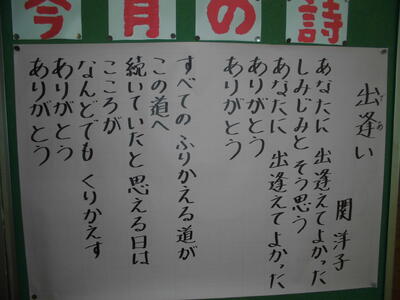 今月の詩
出逢い
関洋子
あなたに 出逢えてよかった
しみじみと そう思う
あなたに 出逢えてよかった
ありがとう
ありがとう
すべての ふりかえる道が
この道へ
続いていたと 思える日は
こころが
なんどでも くりかえす
ありがとう
ありがとう